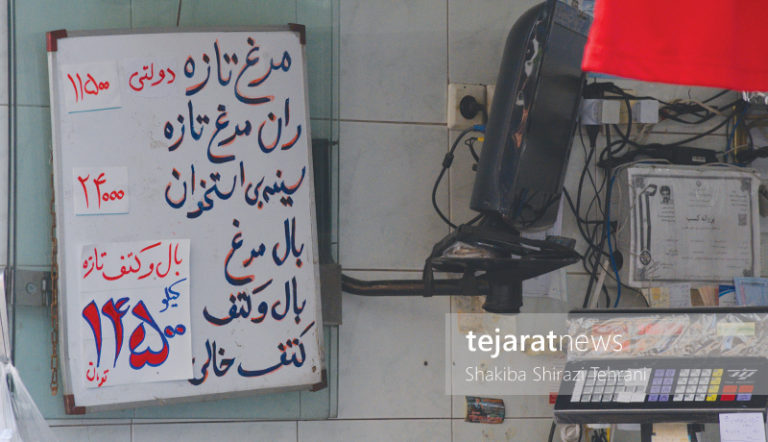 مرغ تازه دولتی ۱۱۵۰۰
ران مرغ تازه
سینه بی استخوان ۲۴۰۰۰
بال مرغ
بال وکتف
کتف خالی
بال وکتف تازه
کیلو
۱۴۵۰۰
تومان
پروانه کسب
tejaratnews
Shakiba Shirazi Tehrani